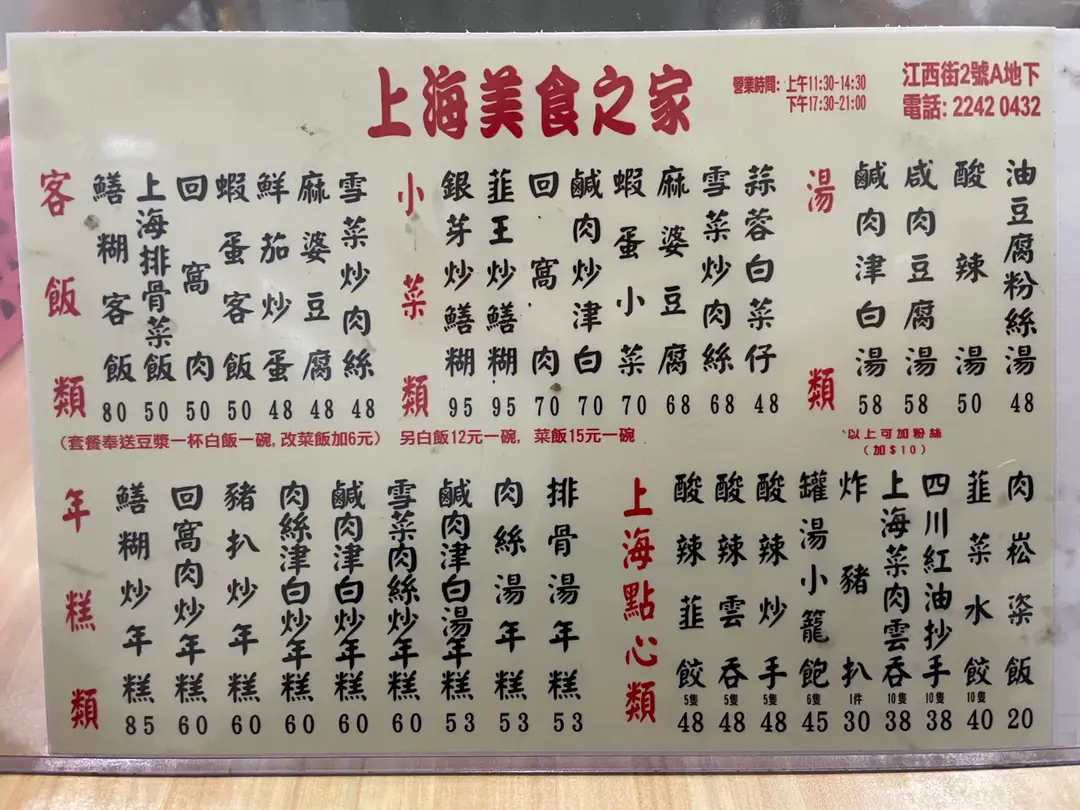 上海美食之家
營業時間: 上午11:30-14:30
下午17:30-21:00
江西街2號A地下
電話: 2242 0432
客飯類
鱔糊客飯 80
上海排骨菜飯 50
回窩肉 50
蝦蛋客飯 50
鮮茄炒蛋 48
麻婆豆腐 48
雪菜炒肉絲 48
小菜類
銀芽炒鱔糊 95
韮王炒鱔糊 95
回窩肉 70
鹹肉炒津白 70
蝦蛋小菜 70
麻婆豆腐 68
雪菜炒肉絲 68
蒜蓉白菜仔 48
湯類
鹹肉津白湯 58
咸肉豆腐湯 58
酸辣湯 50
油豆腐粉絲湯 48
(套餐奉送豆漿一杯白飯一碗, 改菜飯加6元)
另白飯12元一碗, 菜飯15元一碗
以上可加粉絲
(加$10)
年糕類
鱔糊炒年糕 85
回窩肉炒年糕 60
豬扒炒年糕 60
肉絲津白炒年糕 60
鹹肉津白炒年糕 60
雪菜肉絲炒年糕 60
鹹肉津白湯年糕 53
肉絲湯年糕 53
排骨湯年糕 53
上海點心類
酸辣韮餃 5隻 48
酸辣雲吞 5隻 48
酸辣炒手 5隻 48
罐湯小籠飽 6隻 45
炸豬扒 1件 30
上海菜肉雲吞 10隻 38
四川紅油抄手 10隻 38
韮菜水餃 10隻 40
肉崧粢飯 20